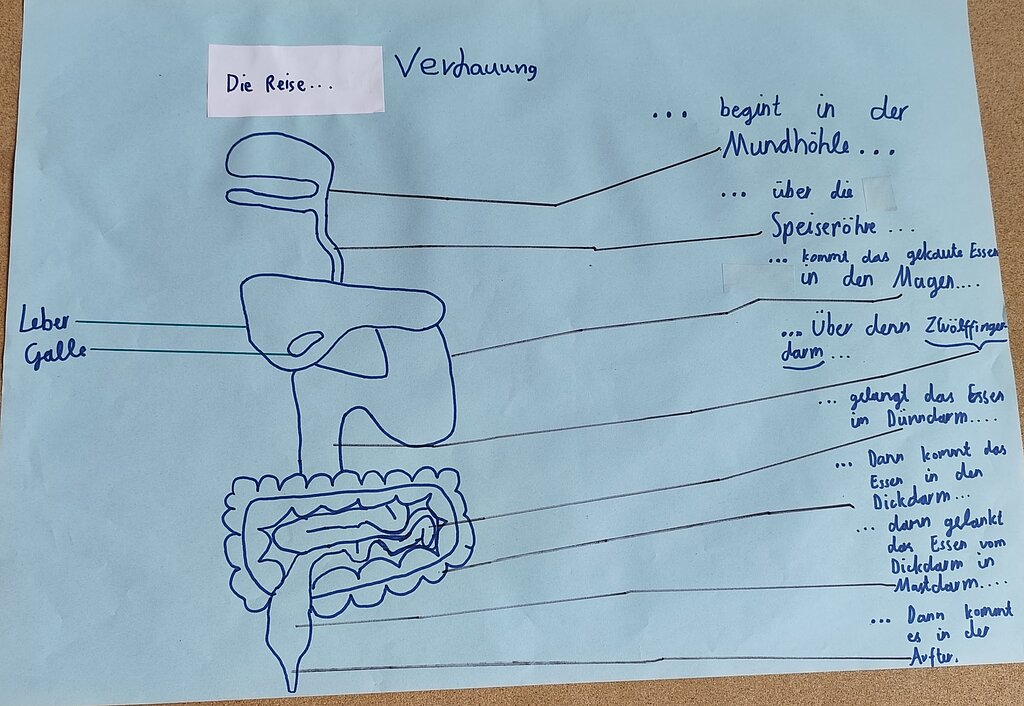 Die Reise...
Verdauung
... begint in der
Mundhöhle...
... über die
Speiseröhre ...
... kommt das gekaute Essen
in den Magen....
... Über denn Zwölffinger
darm ...
... gelangt das Essen
im Dünndarm....
... Dann kommt das
Essen in den
Dickdarm...
... dann gelankt
das Essen vom
Dickdarm in
Mastdarm....
... Dann kommt
es in der
Leber
Galle